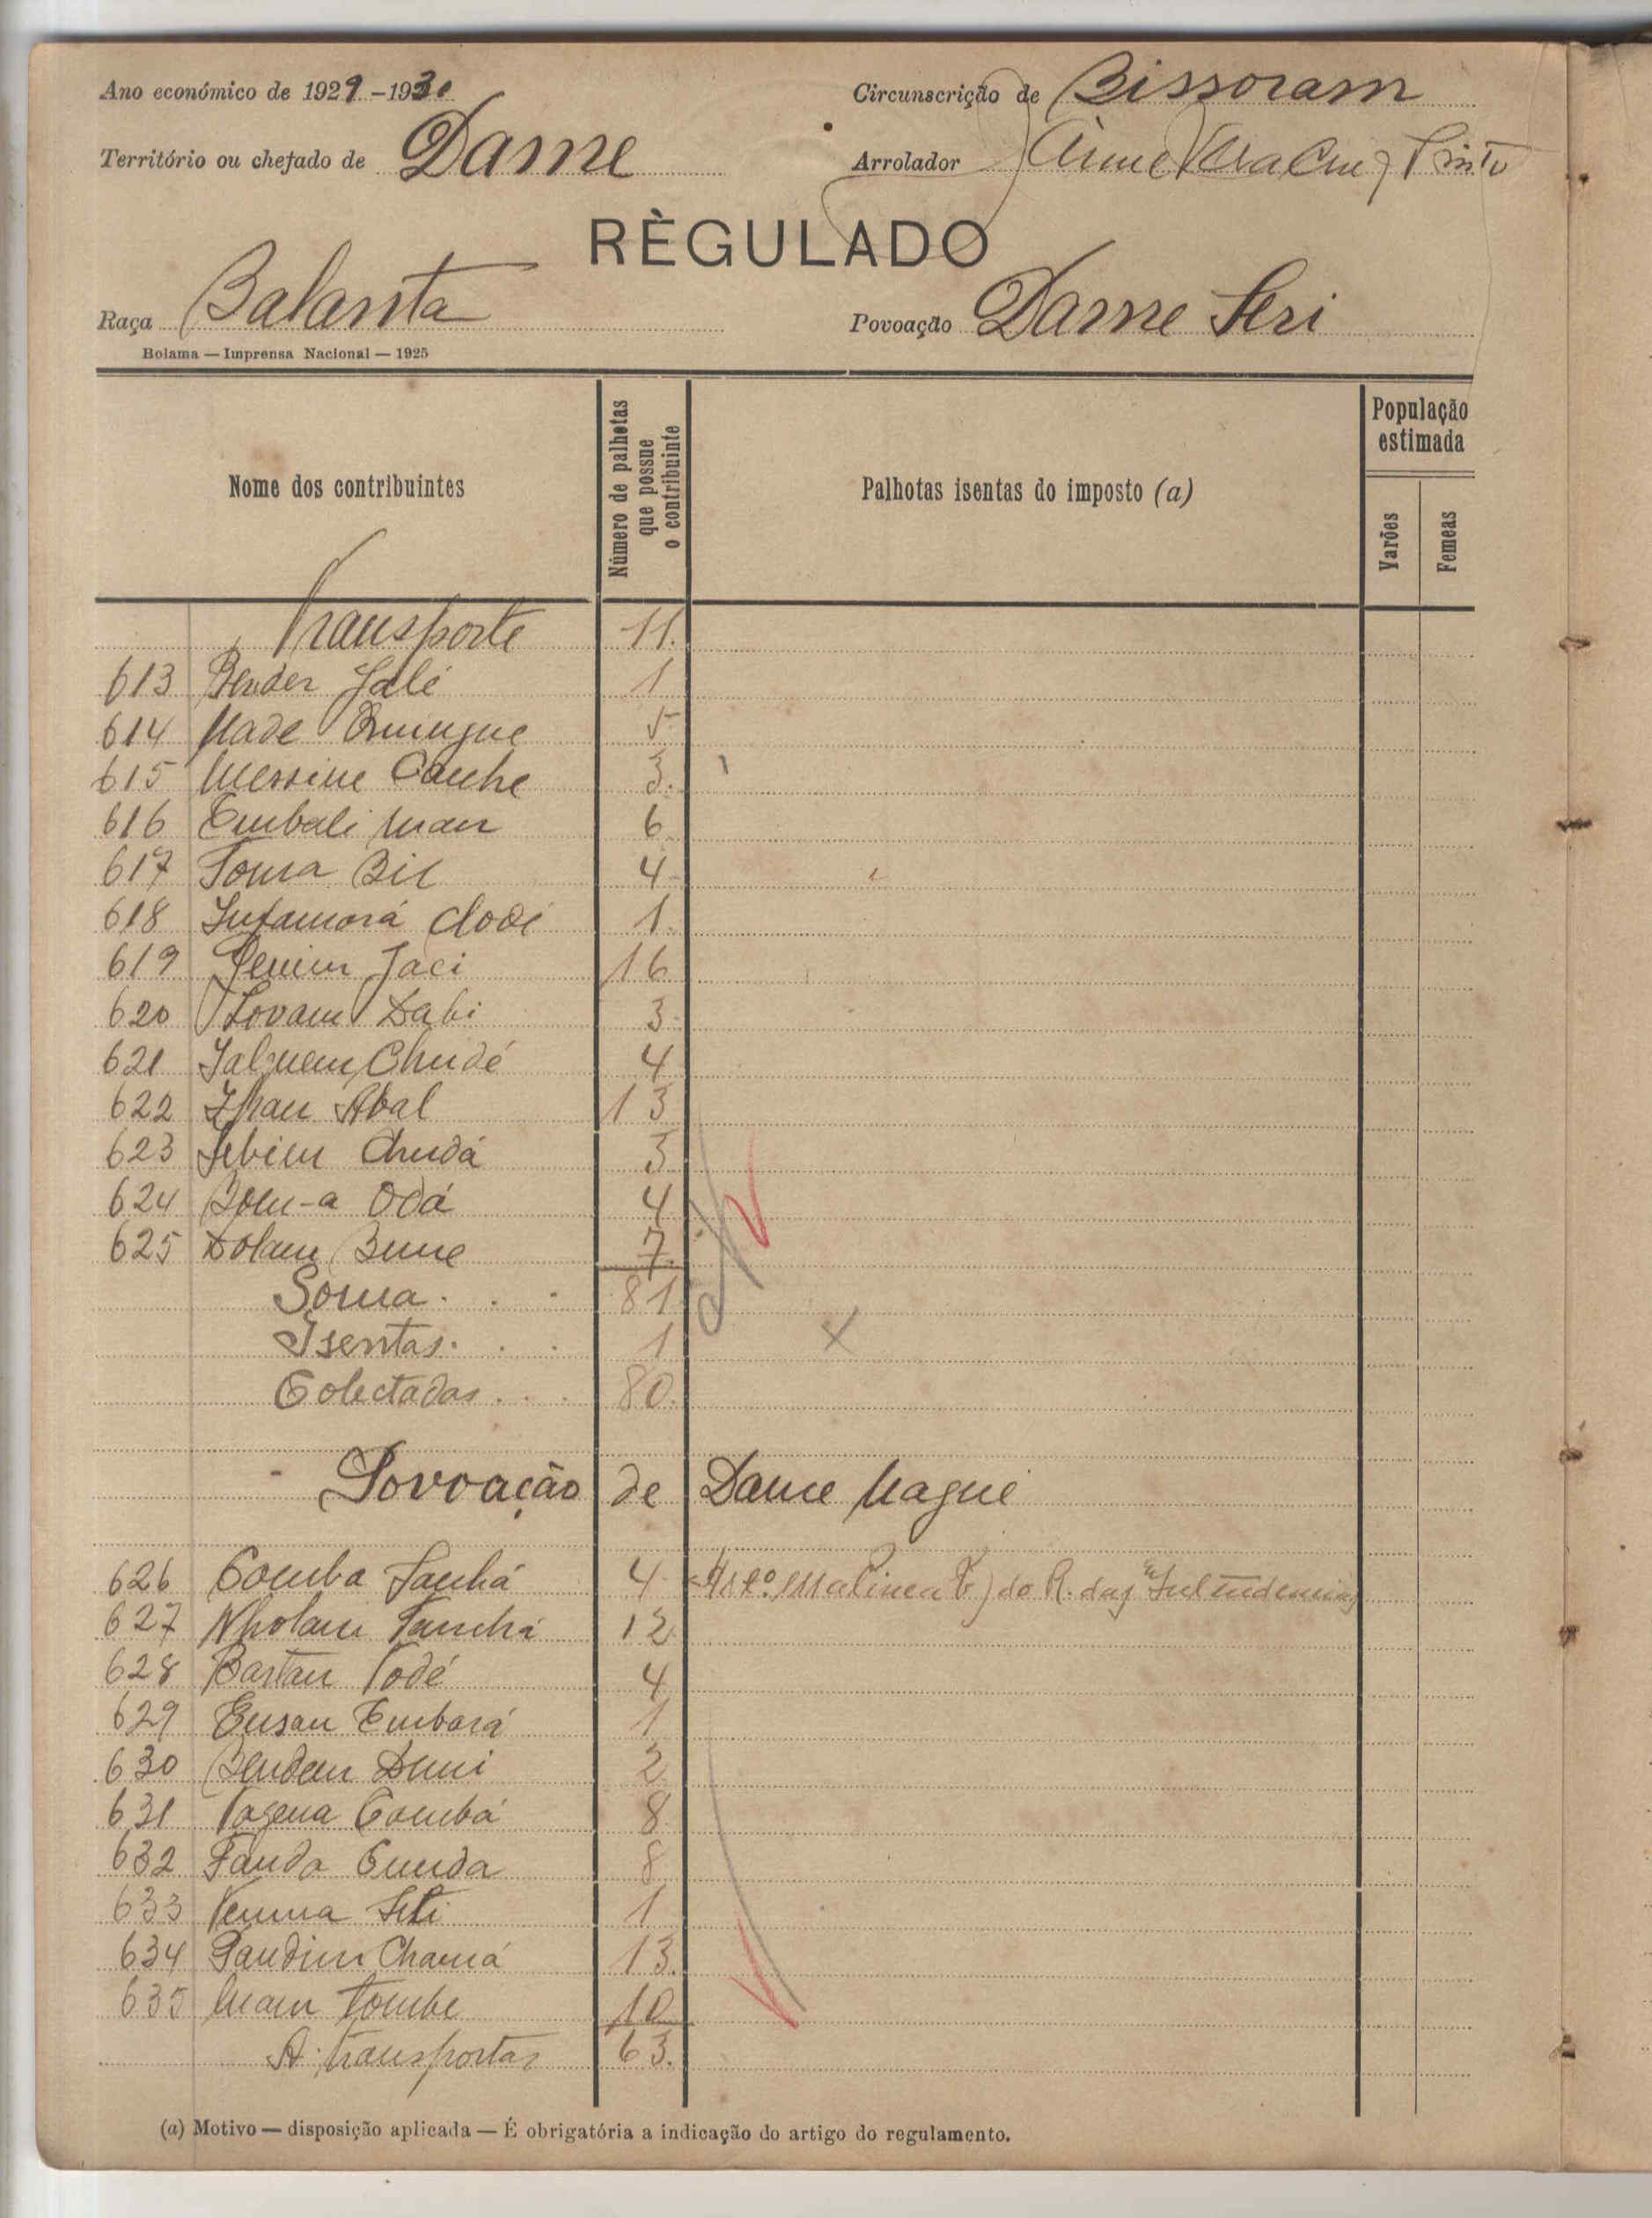 Ano económico de 1929-1930
Circunscrição de Bissoram
Território ou chefado de Dame
Arrolador Pinto
RÈGULADO
Raça Balanta
Povoação Dame Seri
Bolama — Imprensa Nacional — 1925
Nome dos contribuintes
Número de palhotas que possue o contribuinte
Palhotas isentas do imposto (a)
População estimada
Varões
Femeas
Transporte 11.
613 Bender Jalé 1
614 Made Quingue 5
615 Messine Canhe 3.
616 Embali Man 6
617 Toma Bil 4
618 Infamorá Clodé 1.
619 Jaci 16
620 Dabi 3
621 Chudé 4
622 Abal 13
623 Sebim Chudá 3
624 Bom-a Odá 4
625 Dolam Bune 7.
Soma. . . 81
Isentas. . . 1
Colectadas. . . 80.
Povoação de Dame Nague
626 Comba Sanhá 4 do R. das
627 Nholam Sanhá 12
628 Bastan Todé 4
629 Ensan Embará 1
630 Bendam Dumi 2
631 Combá 8
632 Fanda Cunda 8
633 1
634 Pandim Chamá 13.
635 Tombe 10
A transportar 63.
(a) Motivo — disposição aplicada — É obrigatória a indicação do artigo do regulamento.